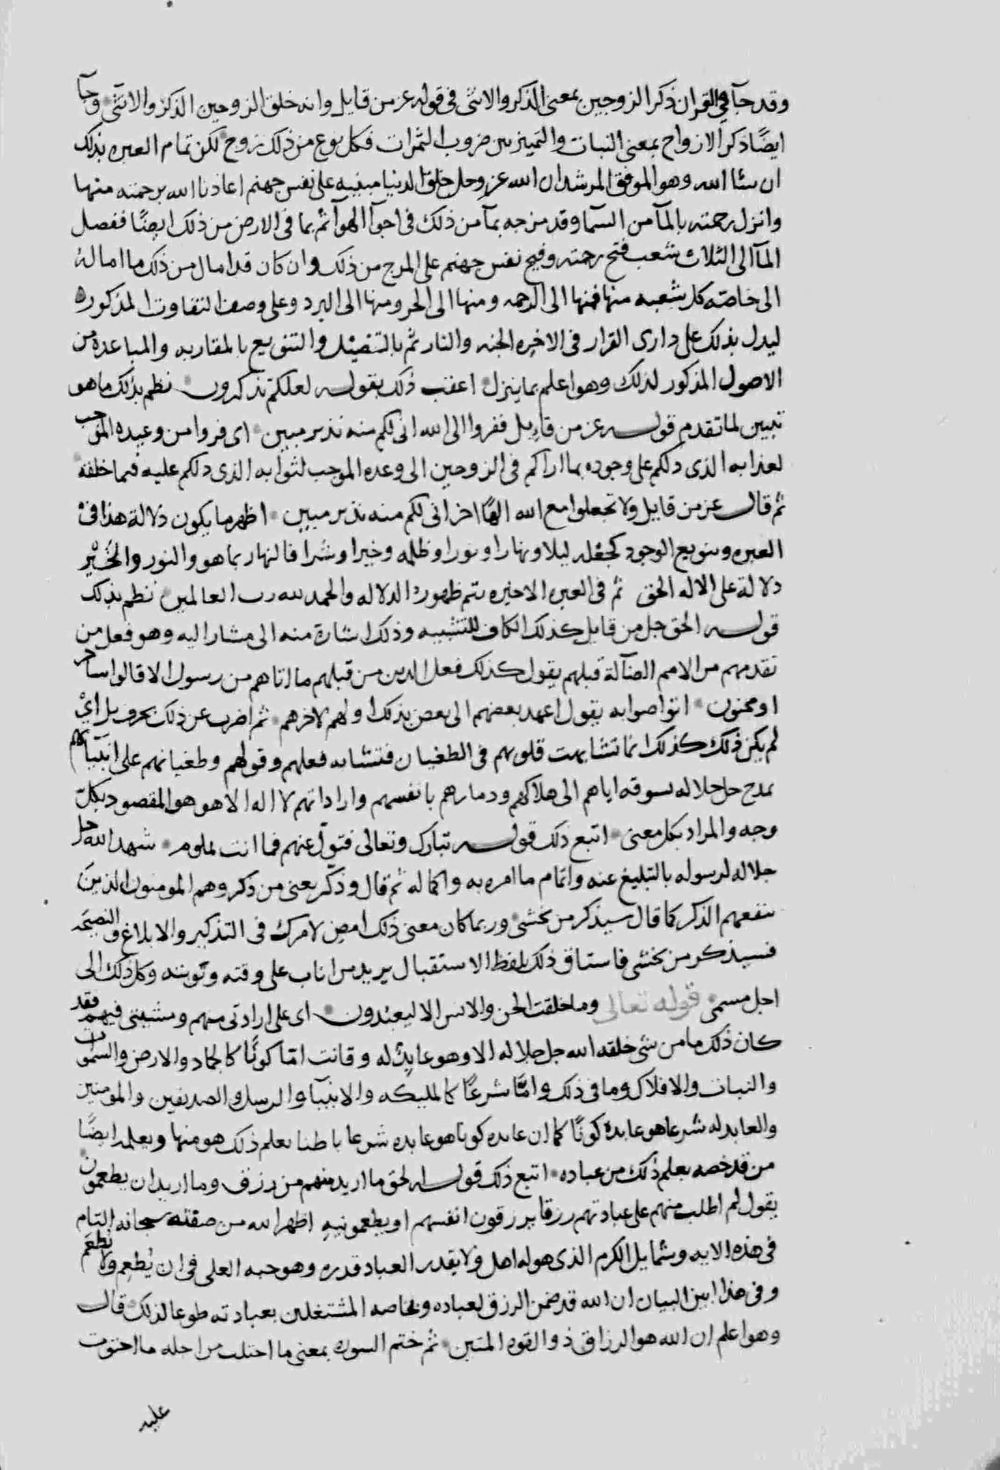 وقد جآ في القران ذكر الزوجين بمعنى الذكر والانثى في قوله عز من قايل وانه خلق الزوجين الذكر والانثى وجآ
ايضًا ذكر الازواج بمعنى النبات والتميز بين ضروب الثمرات فكل نوع من ذلك زوج لكن تمام العبره بذلك
ان شا الله وهو الموفق المرشد ان الله عز وجل خلق الدنيا مبنيه على نفس جهنم اعاذنا الله برحمته منها
وانزل رحمته بالمآ من السمآ وقد مزجه بمآ من ذلك في اجوآ الهوآ ثم بما في الارض من ذلك ايضًا ففصل
المآ الى الثلاث شعب فتح رحمته وفيح نفس جهنم على المزج من ذلك وان كان قد امال من ذلك ما اماله
الى خاصّه كل شعبه منها فمنها الى الرحمه ومنها الى الحر ومنها الى البرد وعلى وصف التفاوت المذكور
ليدل بذلك على دارى القرار في الاخره الجنه والنار ثم بالتفصيل والتنويع بالمقاربه والمباعده من
الاصول المذكور لذلك وهو اعلم بما ينزل اعقب ذلك بقوله لعلكم تذكرون نظم بذلك ما هو
تبيين لما تقدم قوله عز من قايل ففروا الى الله انى لكم منه نذير مبين اى فروا من وعيده الموجب
لعذابه الذى دلكم على وجوده بما اراكم في الزوجين الى وعده الموجب لثوابه الذى دلكم عليه فيما خلقه
ثم قال عز من قايل ولا تجعلوا مع الله الهًا اخر انى لكم منه نذير مبين اظهر ما يكون دلالة هذا في
العبره وتنويع الوجود كجعله ليلا ونهارا ونورا وظلمه وخيرا وشرا فالنهار بما هو والنور والخير
دلالة على الاله الحق ثم في العبره الاخيره يتم ظهور الدلاله والحمد لله رب العالمين نظم بذلك
قوله الحق جل من قايل كذلك الكاف للتشبيه وذلك اشارة منه الى مشار اليه وهو فعل من
تقدمهم من الامم الضآلة قبلهم يقول كذلك فعل الذين من قبلهم ما اتاهم من رسول الا قالوا ساحر
او مجنون اتواصوا به يقول اعهد بعضهم الى بعض بذلك اولهم لاخرهم ثم اضرب عن ذلك بحرف بل اى
لم يكن ذلك كذلك انما تشابهت قلوبهم في الطغيان فتشابه فعلهم وقولهم وطغيانهم على انبيائهم
بمدح جل جلاله بسوقه اياهم الى هلاكهم ودمارهم بانفسهم واراداتهم لا اله الا هو هو المقصود بكلّ
وجه والمراد بكل معنى اتبع ذلك قوله تبارك وتعالى فتول عنهم فما انت بملوم شهد الله جل
جلاله لرسوله بالتبليغ عنه واتمام ما امره به واكماله ثم قال وذكّر يعنى من ذكر وهم المومنون الذين
تنفعهم الذكر كما قال سيذكر من يخشى وربما كان معنى ذلك امضِ لامرك في التذكير والابلاغ والنصيحه
فسيذكر من يخشى فاستاق ذلك بلفظ الاستقبال يريد من اناب على وقته وتوبته وكل ذلك الى
اجل مسمى قوله تعالى وما خلقت الجن والانس الا ليعبدون اى على ارادتى منهم ومشيتى فيهم فقد
كان ذلك ما من شى خلقه الله جل جلاله الا وهو عابد له وقانت امّا كونًا كالجماد والارض والسموات
والنبات والافلاك وما في ذلك وامّا شرعًا كالمليكه والانبيآ والرسل والصديقين والمومنين
والعابد له شرعا هو عابد له كونًا كما ان عابده كونا هو عابده شرعا باطنا يعلم ذلك هو منها ويعلمه ايضًا
من قد خصه بعلم ذلك من عباده اتبع ذلك قوله الحق ما اريد منهم من رزق وما اريد ان يطعمون
يقول لم اطلب منهم على عبادتهم رزقا يرزقون انفسهم او يطعمونيه اظهر الله من صفته سبحانه التام
في هذه الايه وشمايل الكرم الذى هو له اهل ولا يقدر العباد قدره وهو حبه العلى في ان يُطعِم ولا يُطعَم
وفي هذا ابين البيان ان الله قد ضمن الرزق لعباده وبخاصه المشتغلين بعبادته طوعا لذلك قال
وهو اعلم ان الله هو الرزاق ذو القوه المتين ثم ختم السوره بمعنى ما اجتلبت من اجله ما احتوت
عليه